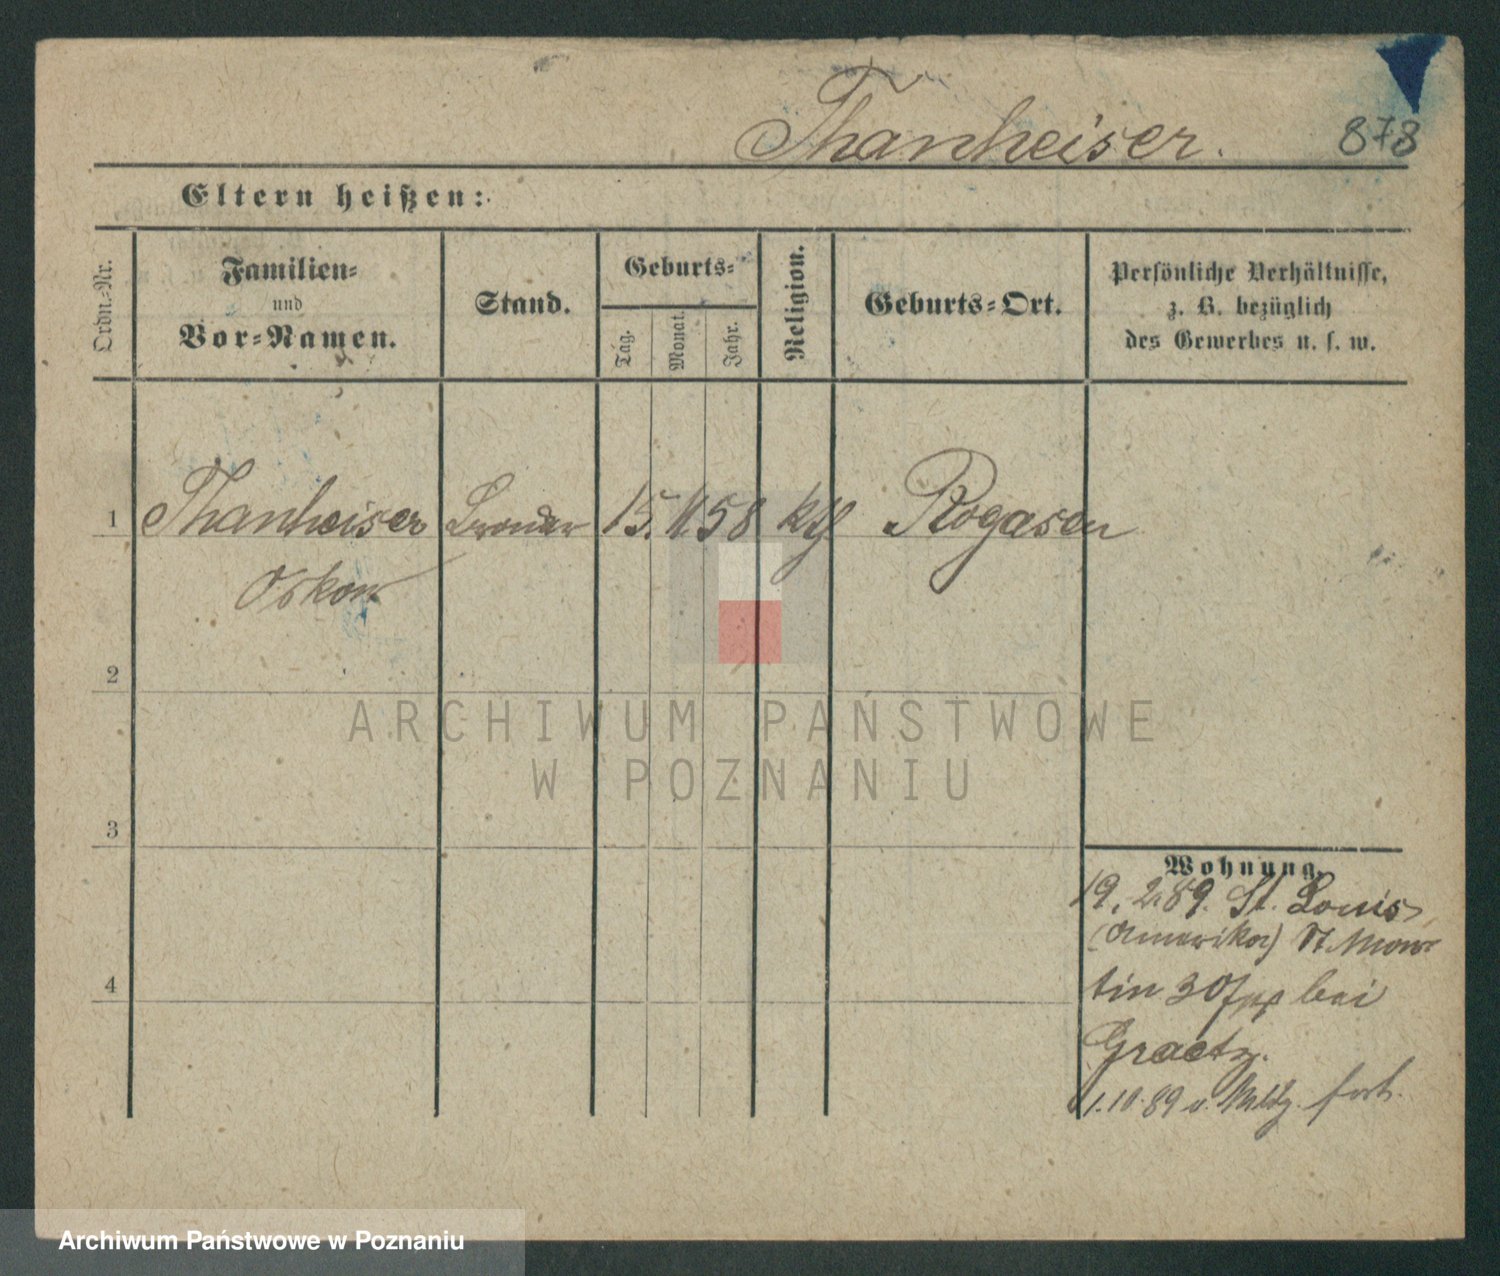 Thanheiser.
878
Eltern heißen:
Ordn.-Nr.
Familien-
und
Vor-Namen.
Stand.
Geburts-
Tag.
Monat.
Jahr.
Religion.
Geburts-Ort.
Persönliche Verhältnisse,
z. B. bezüglich
des Gewerbes u. s. w.
1 Thanheiser 15. 11 58 kth Rogasen
Oskar
2
3
4
Wohnung.
19. 2. 89. St. Louis
(Amerika) St. Mar-
tin 30 bei
Graetz.
1.10.89 o. Meldg. fort.
ARCHIWUM PAŃSTWOWE
W POZNANIU
Archiwum Państwowe w Poznaniu